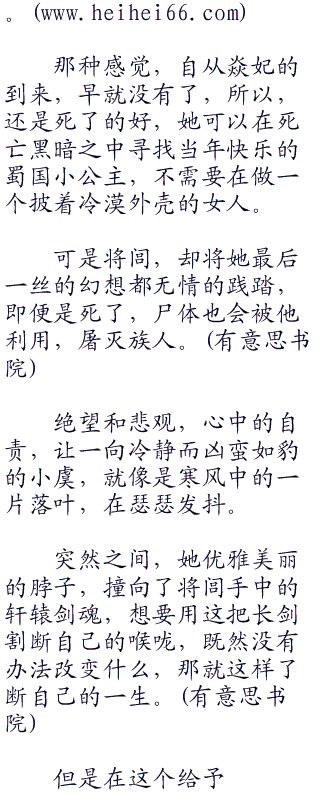 。(www.heihei66.com)
那种感觉，自从焱妃的
到来，早就没有了，所以，
还是死了的好，她可以在死
亡黑暗之中寻找当年快乐的
蜀国小公主，不需要在做一
个披着冷漠外壳的女人。
可是将闾，却将她最后
一丝的幻想都无情的践踏，
即便是死了，尸体也会被他
利用，屠灭族人。(有意思书
院)
绝望和悲观，心中的自
责，让一向冷静而凶蛮如豹
的小虞，就像是寒风中的一
片落叶，在瑟瑟发抖。
突然之间，她优雅美丽
的脖子，撞向了将闾手中的
轩辕剑魂，想要用这把长剑
割断自己的喉咙，既然没有
办法改变什么，那就这样了
断自己的一生。(有意思书
院)
但是在这个给予